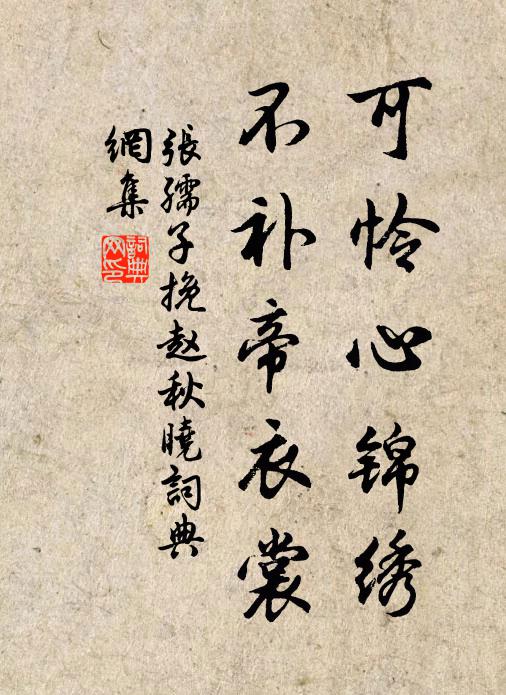 可怜心锦绣
不补帝衣裳
張孺子挽赵秋曉詞典
網集
詞典
网印